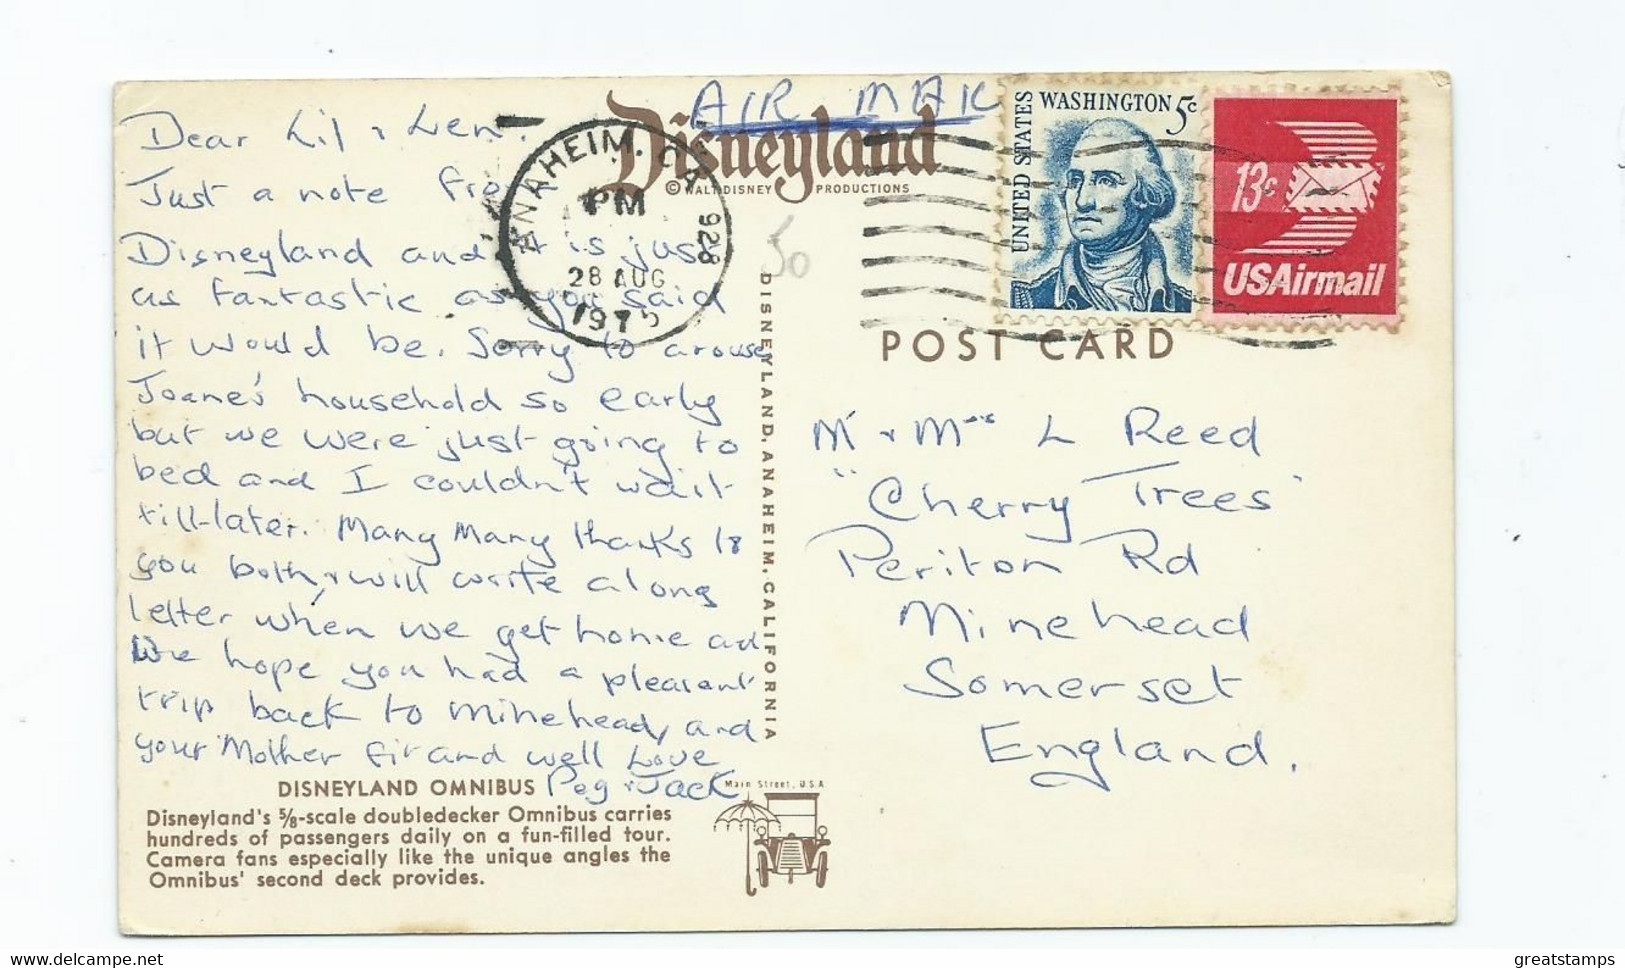 Dear Lil & Len.
Just a note from
Disneyland and it is just
as fantastic as you said
it would be. Sorry to arouse
Joane's household so early
but we were just going to
bed and I couldn't wait
till later. Many Many thanks to
you both, & will write a long
letter when we get home and
We hope you had a pleasant
trip back to Minehead, and
your Mother fit and well Love
Peg & Jack
DISNEYLAND OMNIBUS
Disneyland's 5/8-scale doubledecker Omnibus carries
hundreds of passengers daily on a fun-filled tour.
Camera fans especially like the unique angles the
Omnibus' second deck provides.
Main Street, U.S.A
DISNEYLAND, ANAHEIM, CALIFORNIA
AIR MAIL
Disneyland
© WALT DISNEY PRODUCTIONS
ANAHEIM, CA 928
PM
28 AUG
1975
50
UNITED STATES
WASHINGTON 5c
13c
USAirmail
POST CARD
Mr & Mrs L Reed
"Cherry Trees"
Periton Rd
Minehead
Somerset
England.
delcampe.net
greatstamps